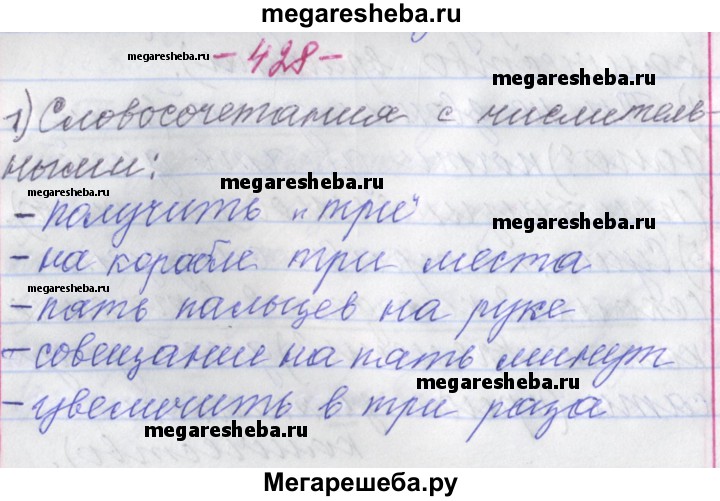 megaresheba.ru
- 428 -
megaresheba.ru
megaresheba.ru
1) Словосочетания с числитель-
ными:
megaresheba.ru
megaresheba.ru
- получить "три"
megaresheba.ru
- на корабле три места
- пять пальцев на руке
- совещание на пять минут
megaresheba.ru
- увеличить в три раза
megaresheba.ru
Мегарешеба.ру